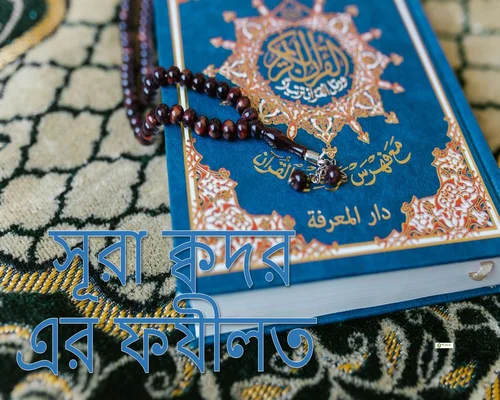 القرآن الكريم
مع فهرس
القرآن
دار المعرفة
সূরা ক্বদর
এর ফযীলত